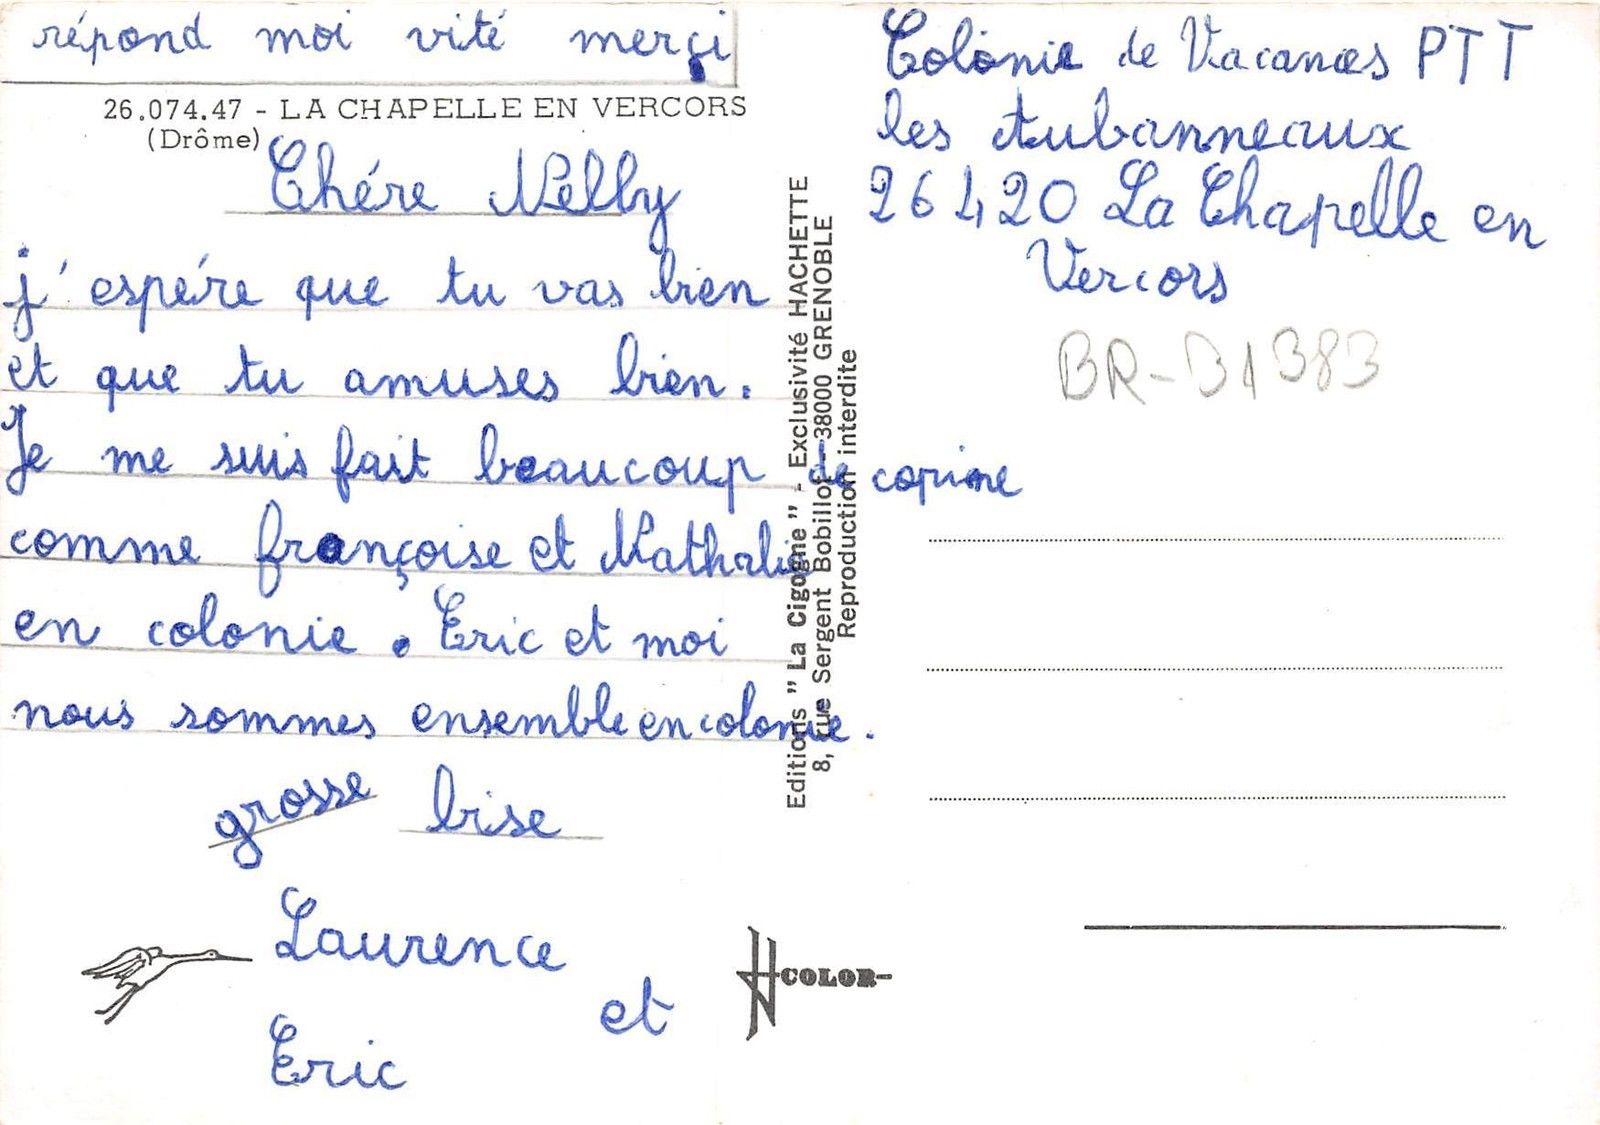 répond moi vité merçi
26.074.47 - LA CHAPELLE EN VERCORS
(Drôme)
Chére Nelly
j'espére que tu vas bien
et que tu amuses bien.
Je me suis fait beaucoup de copine
comme françoise et Nathalie
en colonie. Eric et moi
nous sommes ensemble en colonie.
grosse bise
Laurence
et
Eric
Editions " La Cigogne " - Exclusivité HACHETTE
8, rue Sergent Bobillot - 38000 GRENOBLE
Reproduction interdite
COLOR
Colonie de Vacances PTT
les Aubanneaux
26420 La Chapelle en
Vercors
BR-D1383